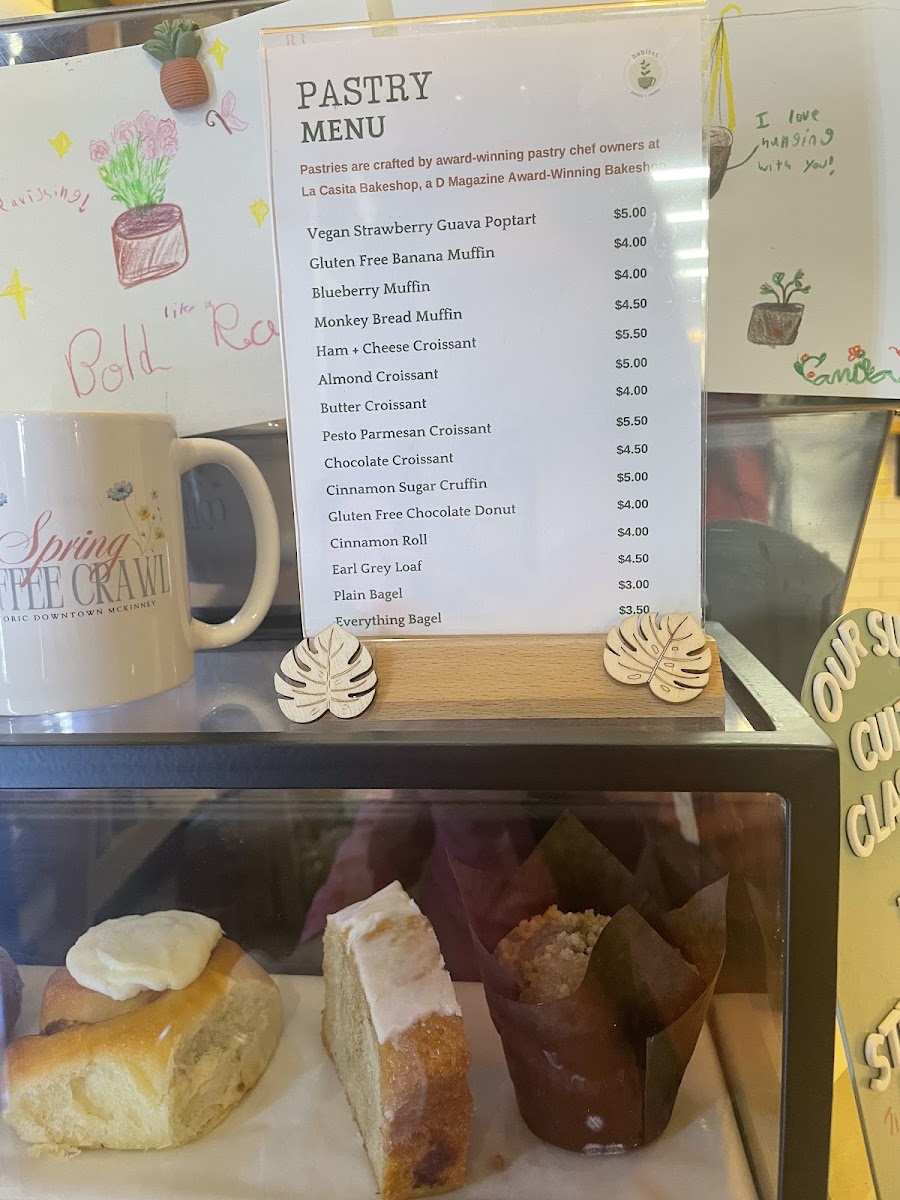 habitat
PASTRY
MENU
Pastries are crafted by award-winning pastry chef owners at
La Casita Bakeshop, a D Magazine Award-Winning Bakeshop
Vegan Strawberry Guava Poptart $5.00
Gluten Free Banana Muffin $4.00
Blueberry Muffin $4.00
Monkey Bread Muffin $4.50
Ham + Cheese Croissant $5.50
Almond Croissant $5.00
Butter Croissant $4.00
Pesto Parmesan Croissant $5.50
Chocolate Croissant $4.50
Cinnamon Sugar Cruffin $5.00
Gluten Free Chocolate Donut $4.00
Cinnamon Roll $4.00
Earl Grey Loaf $4.50
Plain Bagel $3.00
Everything Bagel $3.50
Ravishing!
Bold like a Ro
I love
hunging
with you!
Spring
FFEE CRAWL
ORIC DOWNTOWN MCKINNEY
OUR SU
CUT
CLA
ST